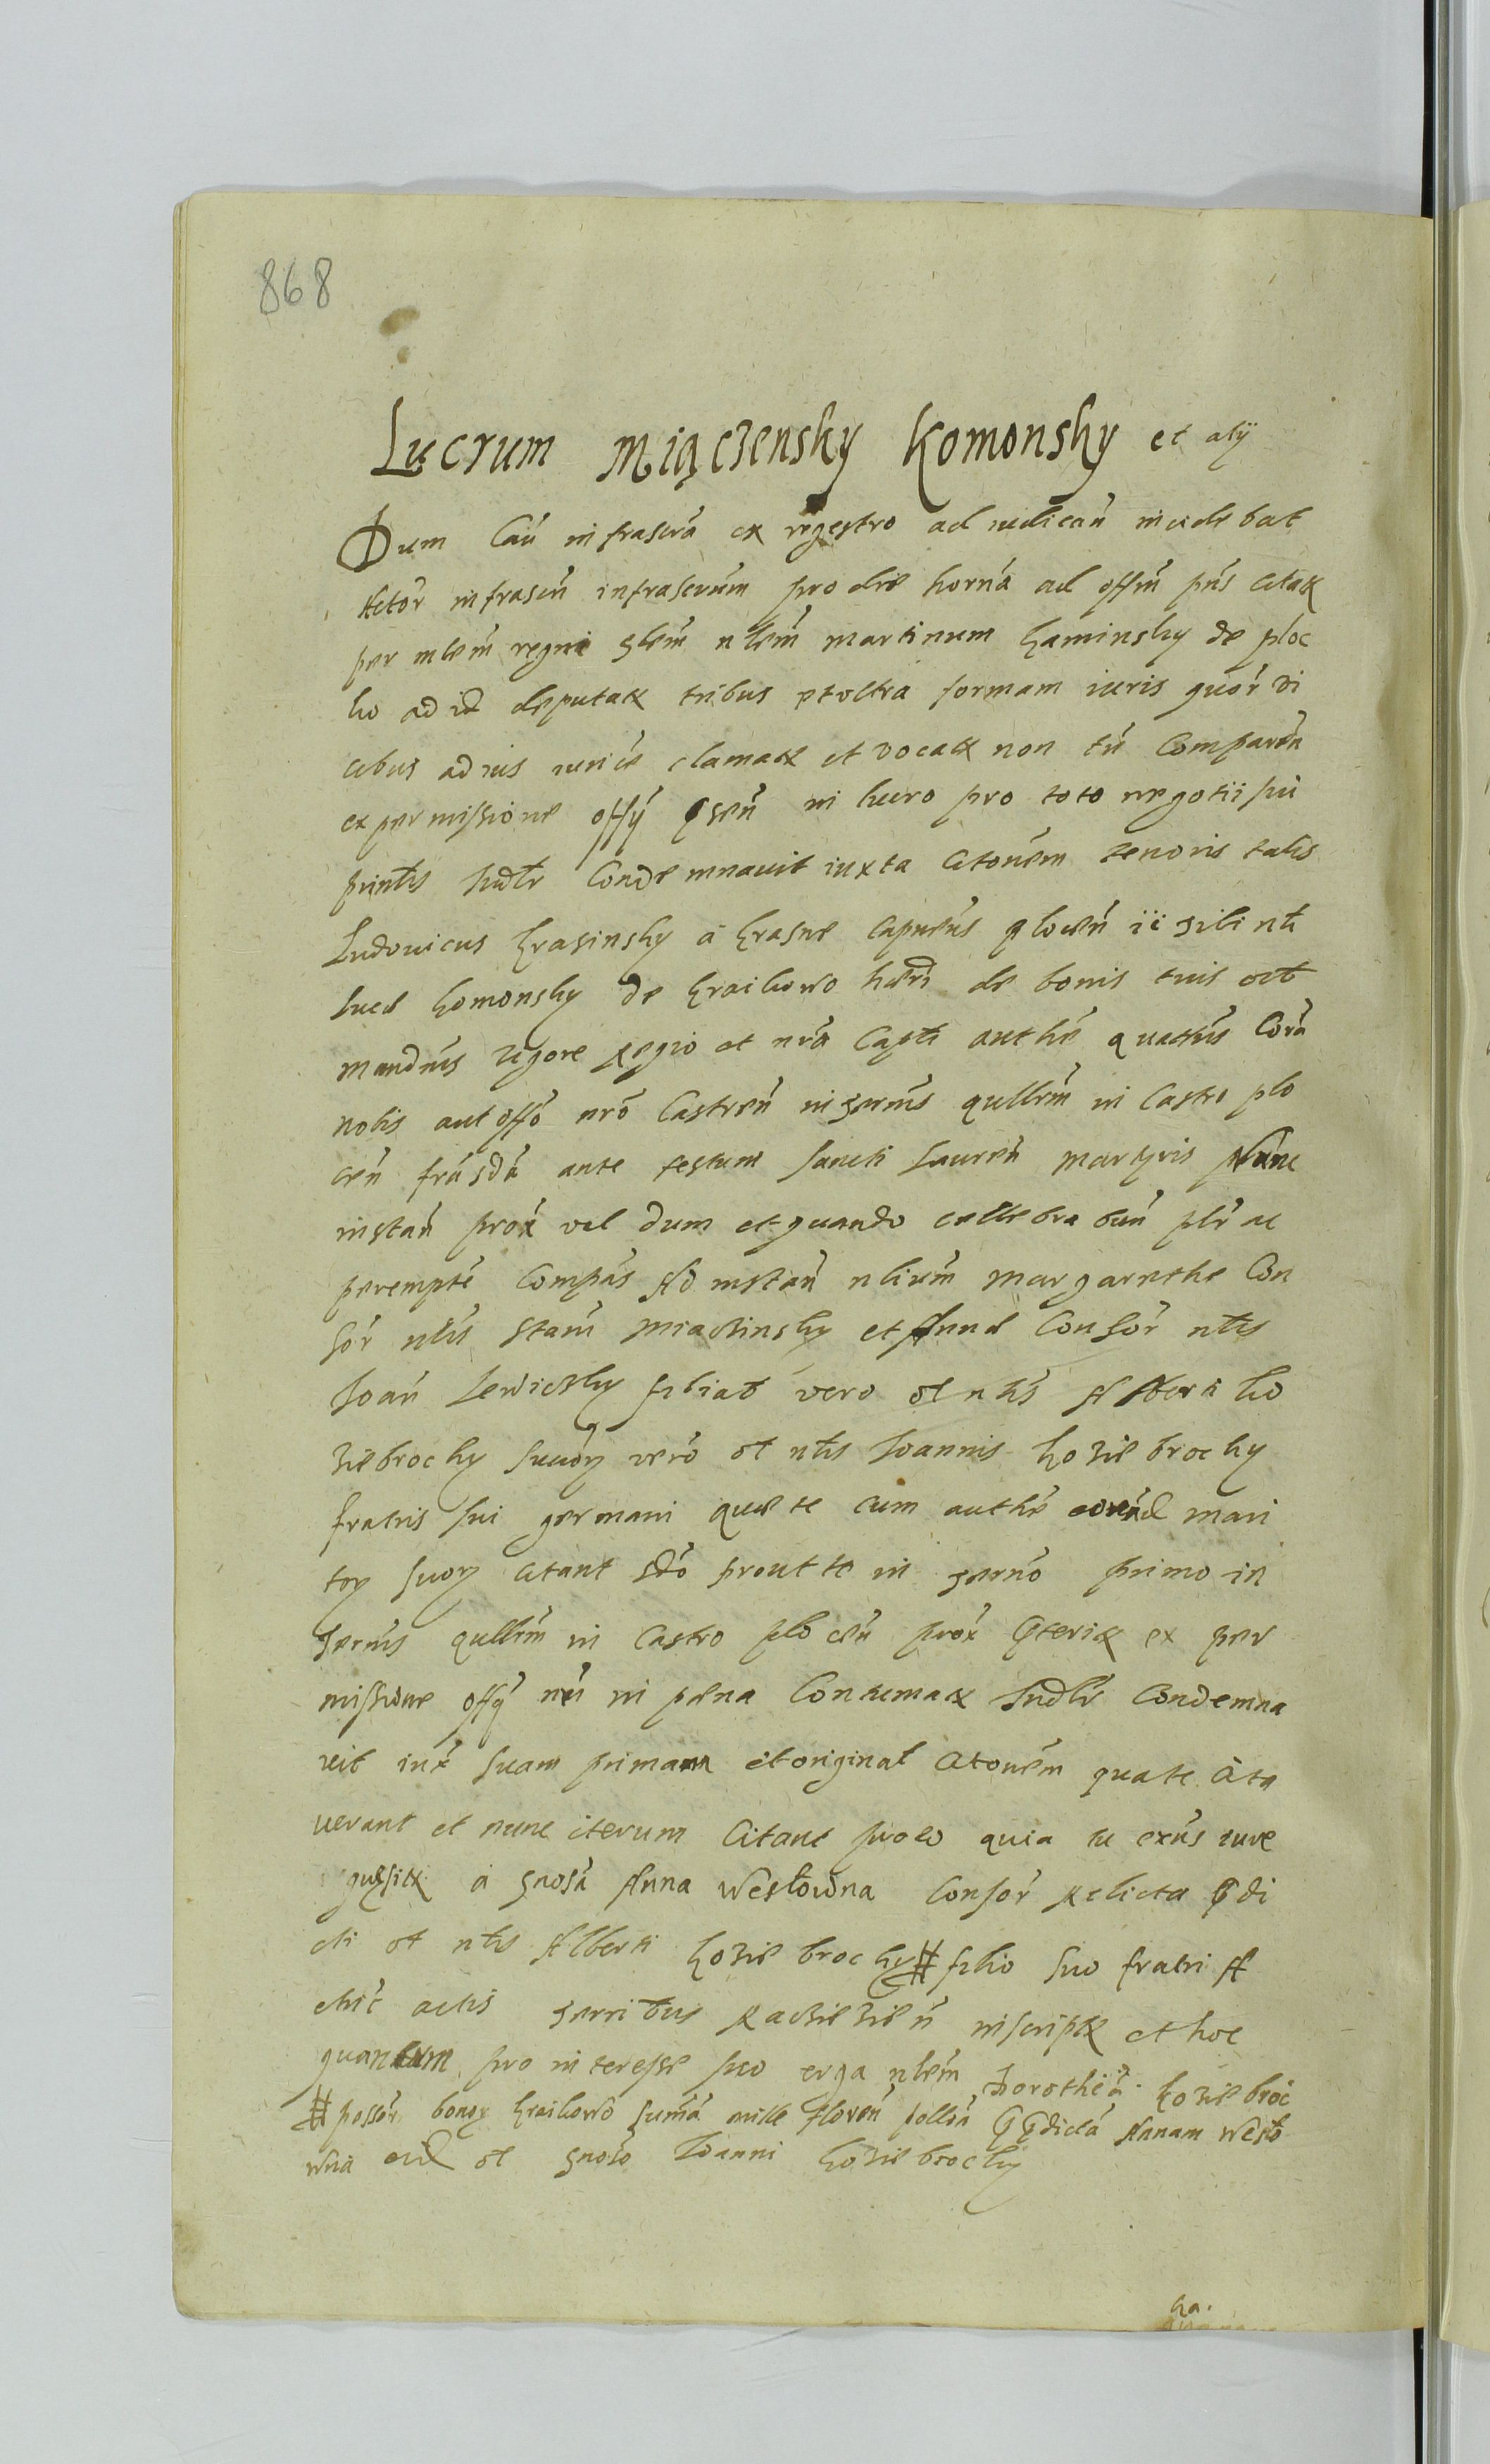 868
Lucrum Miączensky Komonsky et alÿ
Dum Caŭ infrascrā ex regestro ad iudicań incidebat
Actor infrascrń infrascrúm pro die horná ad offm pńs citatx
per mlem regni glem nlem martinum kaminsky de ploc
ko ad id deputatx tribus et ultra formam iuris quór vi
cibus ad ius iurice clamatx et vocatx non tń Comparén
ex permissione offÿ psen in lucro pro toto negotii sui
printis Iudtr Condemnauit iuxta Citoném tenoris talis
Ludovicus krasinsky á krasne capneus plocen ii Tibi nli
luce komonsky de kraikowo herì de bonis tuis oib
mandm̄s vigore regio et nrā Capti authe quatńs Corā
nobis aut offo nro Castren in termis qullrm in Castro plo
cen fra sdā ante festum Sancti Lauren martyris Nunc
instan prox vel dum et quando cellebrabun ptr ac
perempte Compas Ad instan nlium margarethe Con
sor nlis Stani miaczinsky et Anne Consor nlis
Ioan Lewiczky filiab vero ol nlis Alberti ko
ziebrocky Succor vero ol nlis Ioannis koziebrocky
fratris sui germani que te cum authe eorūd mari
tor suor citant sdo prout te in termo primo in
termis qullrm in Castro plocen prox pteritx ex per
missione offÿ nri in pena Contumatx Iudtr Condemna
vit iux suam primam et original Citonem qua te Cita
verant et nunc iterum Citant pro eo quia tu exns iure
quesitx a gnosa Anna Westowna Consor relicta pdi
cti ol nlis Alberti koziebrocky # filio suo fratri A
ctric actis terribus racziezien inscriptx et hoc
quantum pro interesse suo erga nlem Dorothea koziebroc
# posson bonor kraikowo suma mille floren pollon p pdicta Annam Westo
wna eid ol gnoso Ioanni koziebrocky
ka.